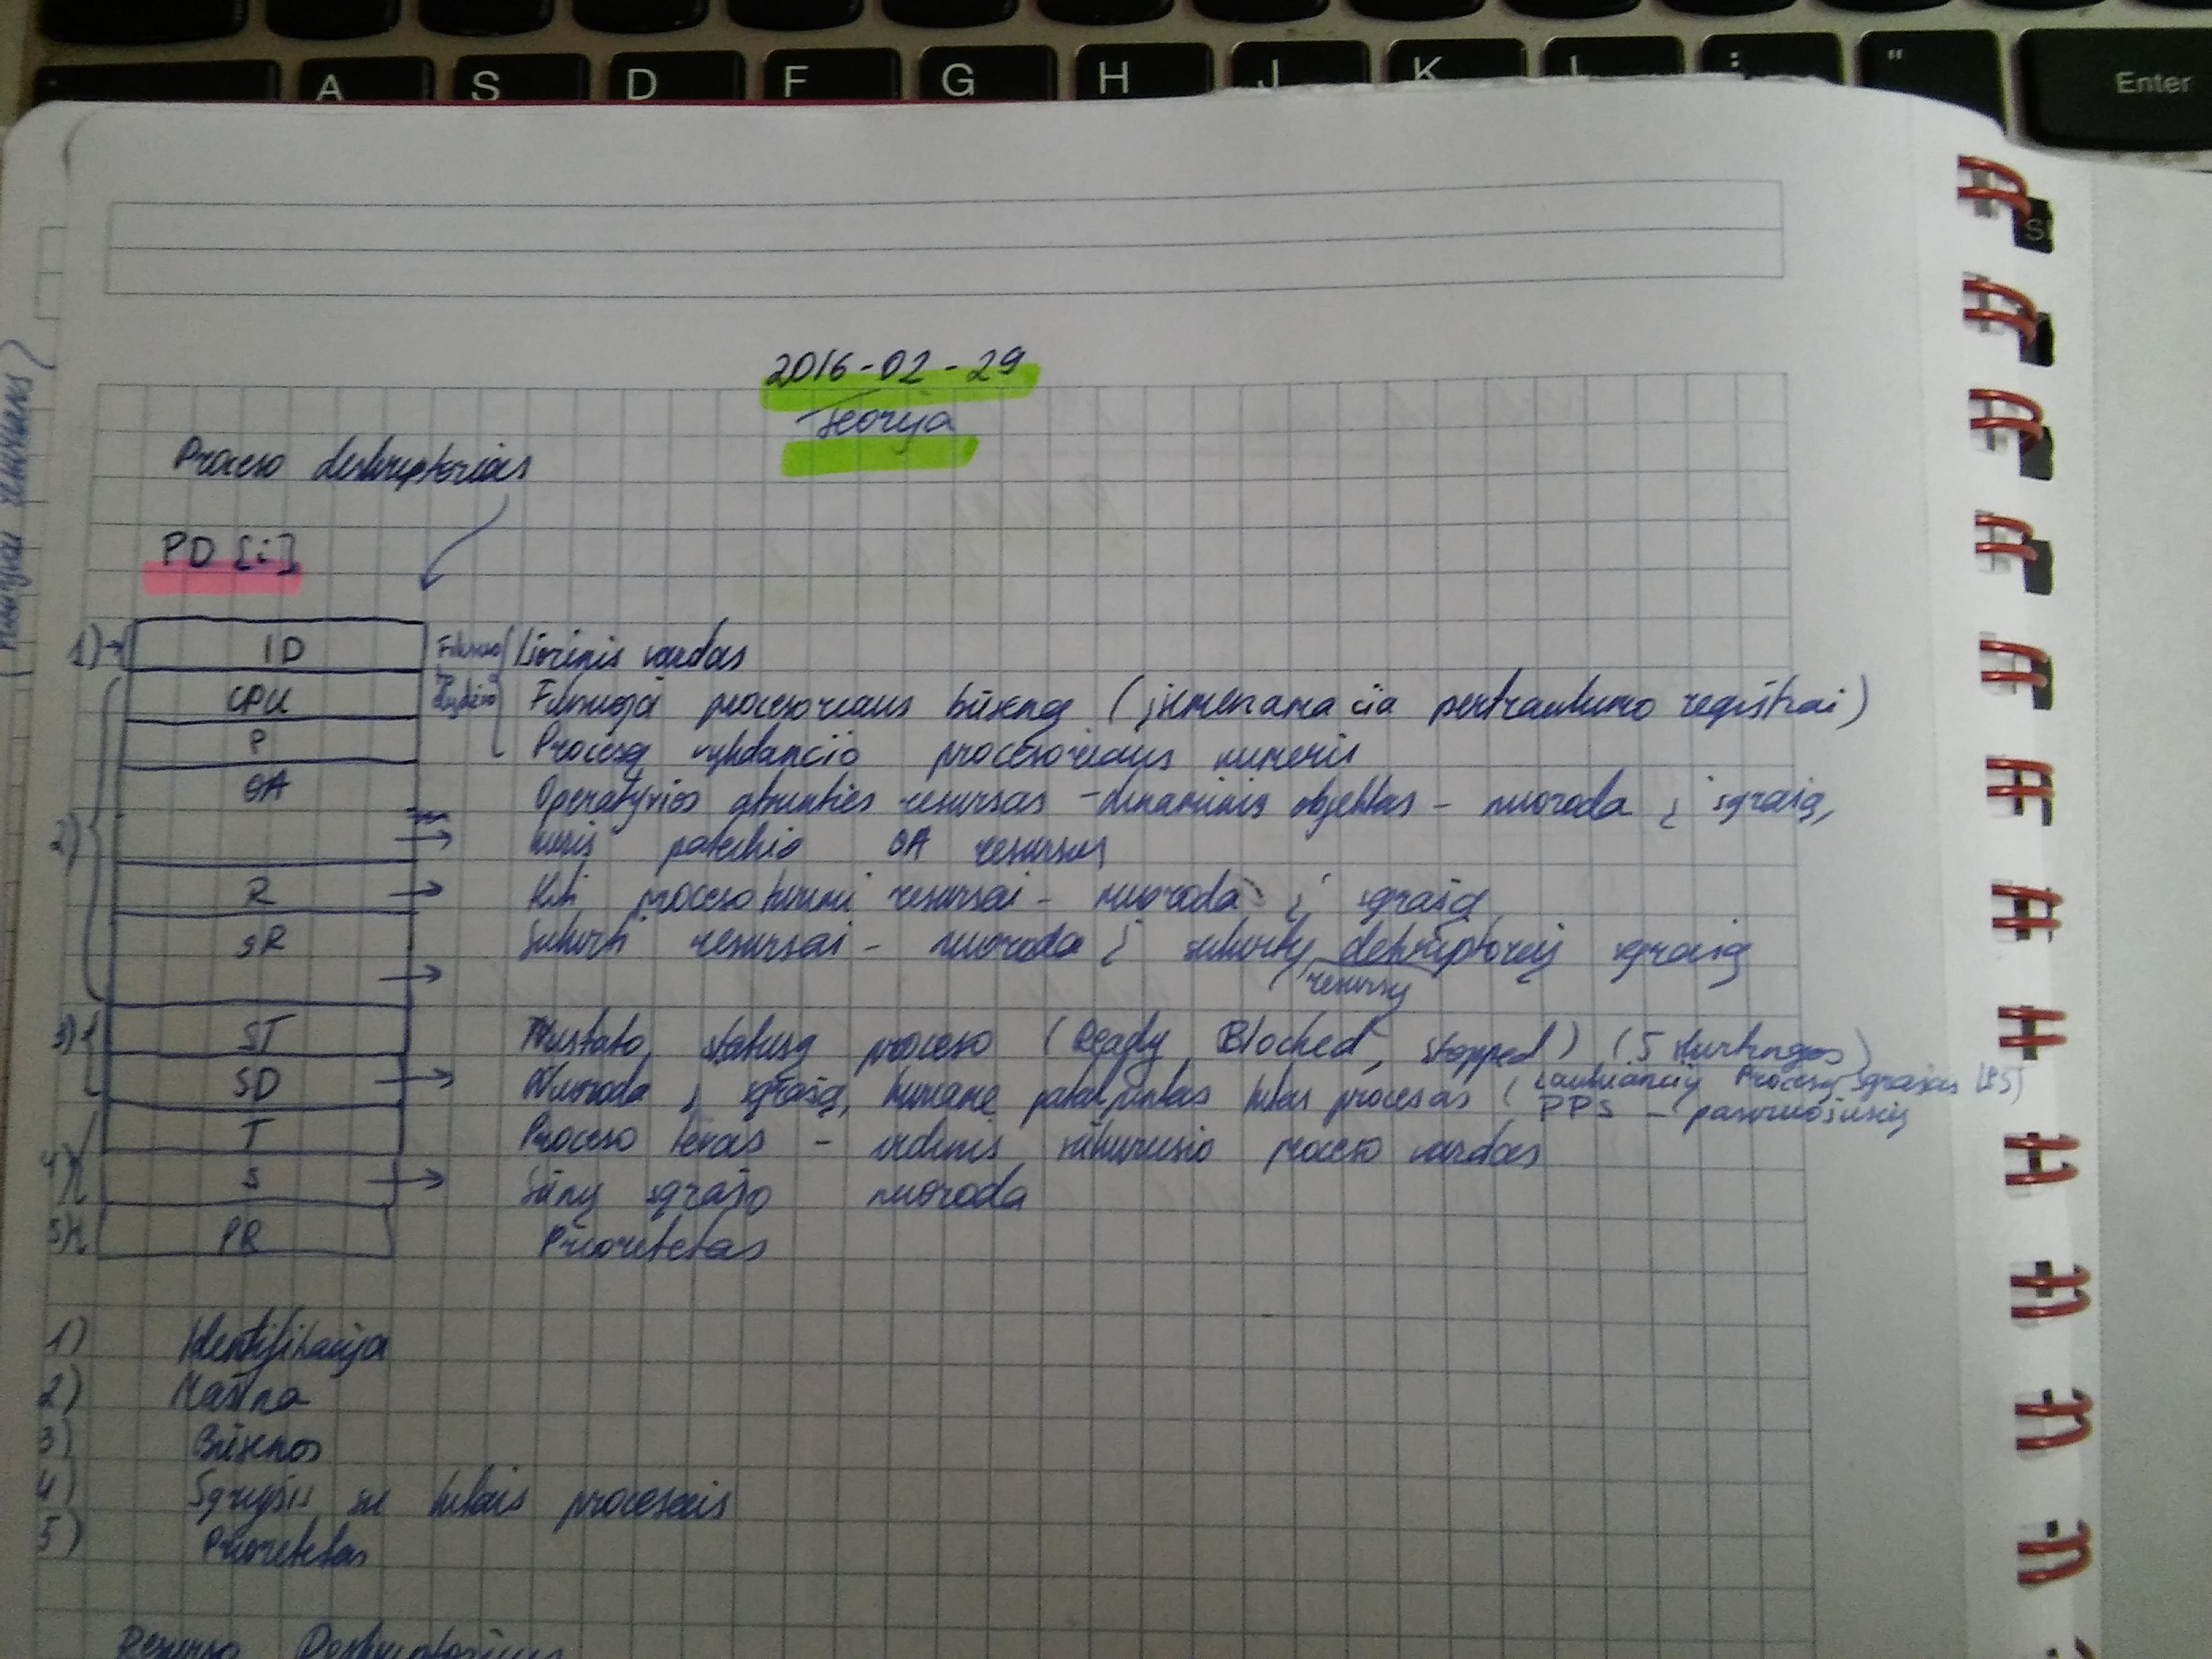 A S D F G H J K L : " Enter
2016-02-29
Teorija
Proceso deskriptorius
PD [i]
1) ID Fiksuoto dydžio Išorinis vardas
CPU Fiksuoja procesoriaus būseną (įsimenama čia pertraukimo registrai)
P Procesą vykdančio procesoriaus numeris
OA Operatyvios atminties resursas - dinaminis objektas - nuoroda į sąrašą,
2) kuris pateikia OA resursus
R Kiti proceso turimi resursai - nuoroda į sąrašą
SR Sukurti resursai - nuoroda į sukurtų deskriptorių sąrašą
resursų
3) ST Nustato statusą proceso (Ready, Blocked, stopped) (5 skirtingos)
SD Nuoroda į sąrašą, kuriame patalpintas tokas procesas (Laukiančių Procesų sąrašas LPS)
PPS - pasiruošusių
T Proceso tėvas - vidinis sukūrusio proceso vardas
4) S Sūnų sąrašo nuoroda
5) PR Prioretetas
1) Identifikacija
2) Mašina
3) Būsenos
4) Sąryšis su kitais procesais
5) Prioretetas
Resurso Deskriptorius